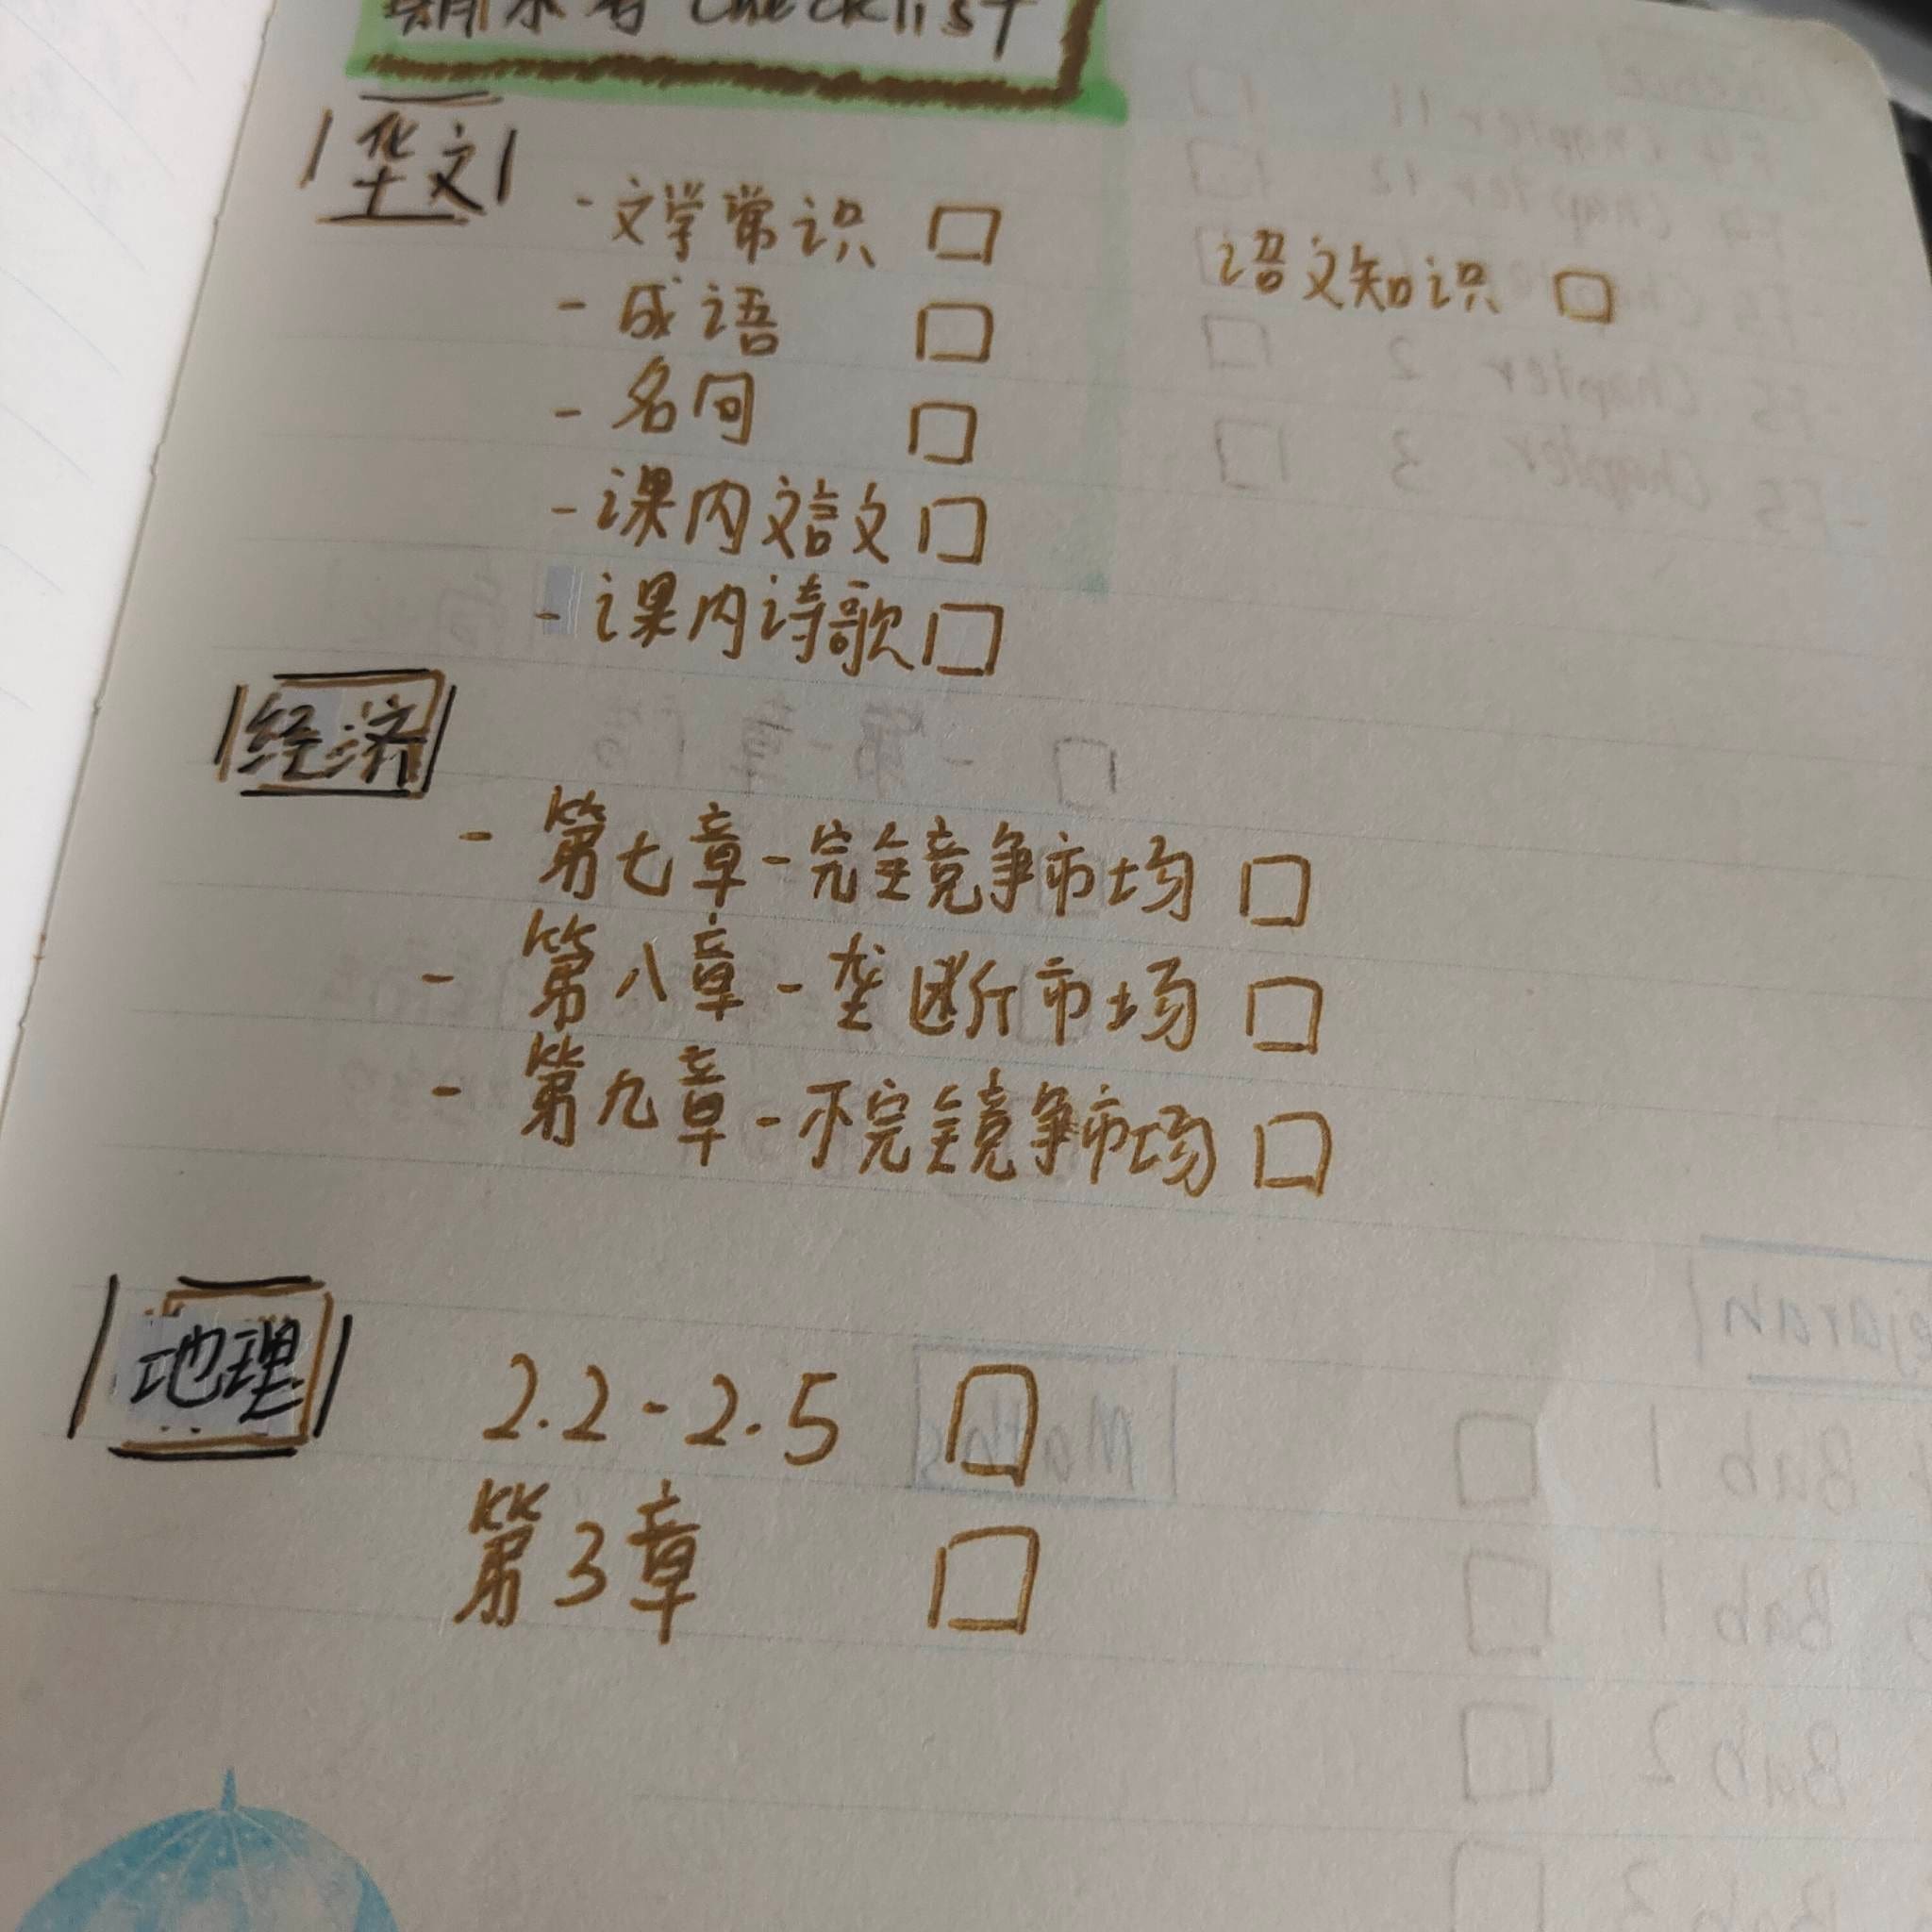 期末考 Checklist
华文
- 文学常识 □ 语文知识 □
- 成语 □
- 名句 □
- 课内文言文 □
- 课内诗歌 □
经济
- 第七章-完全竞争市场 □
- 第八章-垄断市场 □
- 第九章-不完全竞争市场 □
地理
2.2-2.5 □
第3章 □